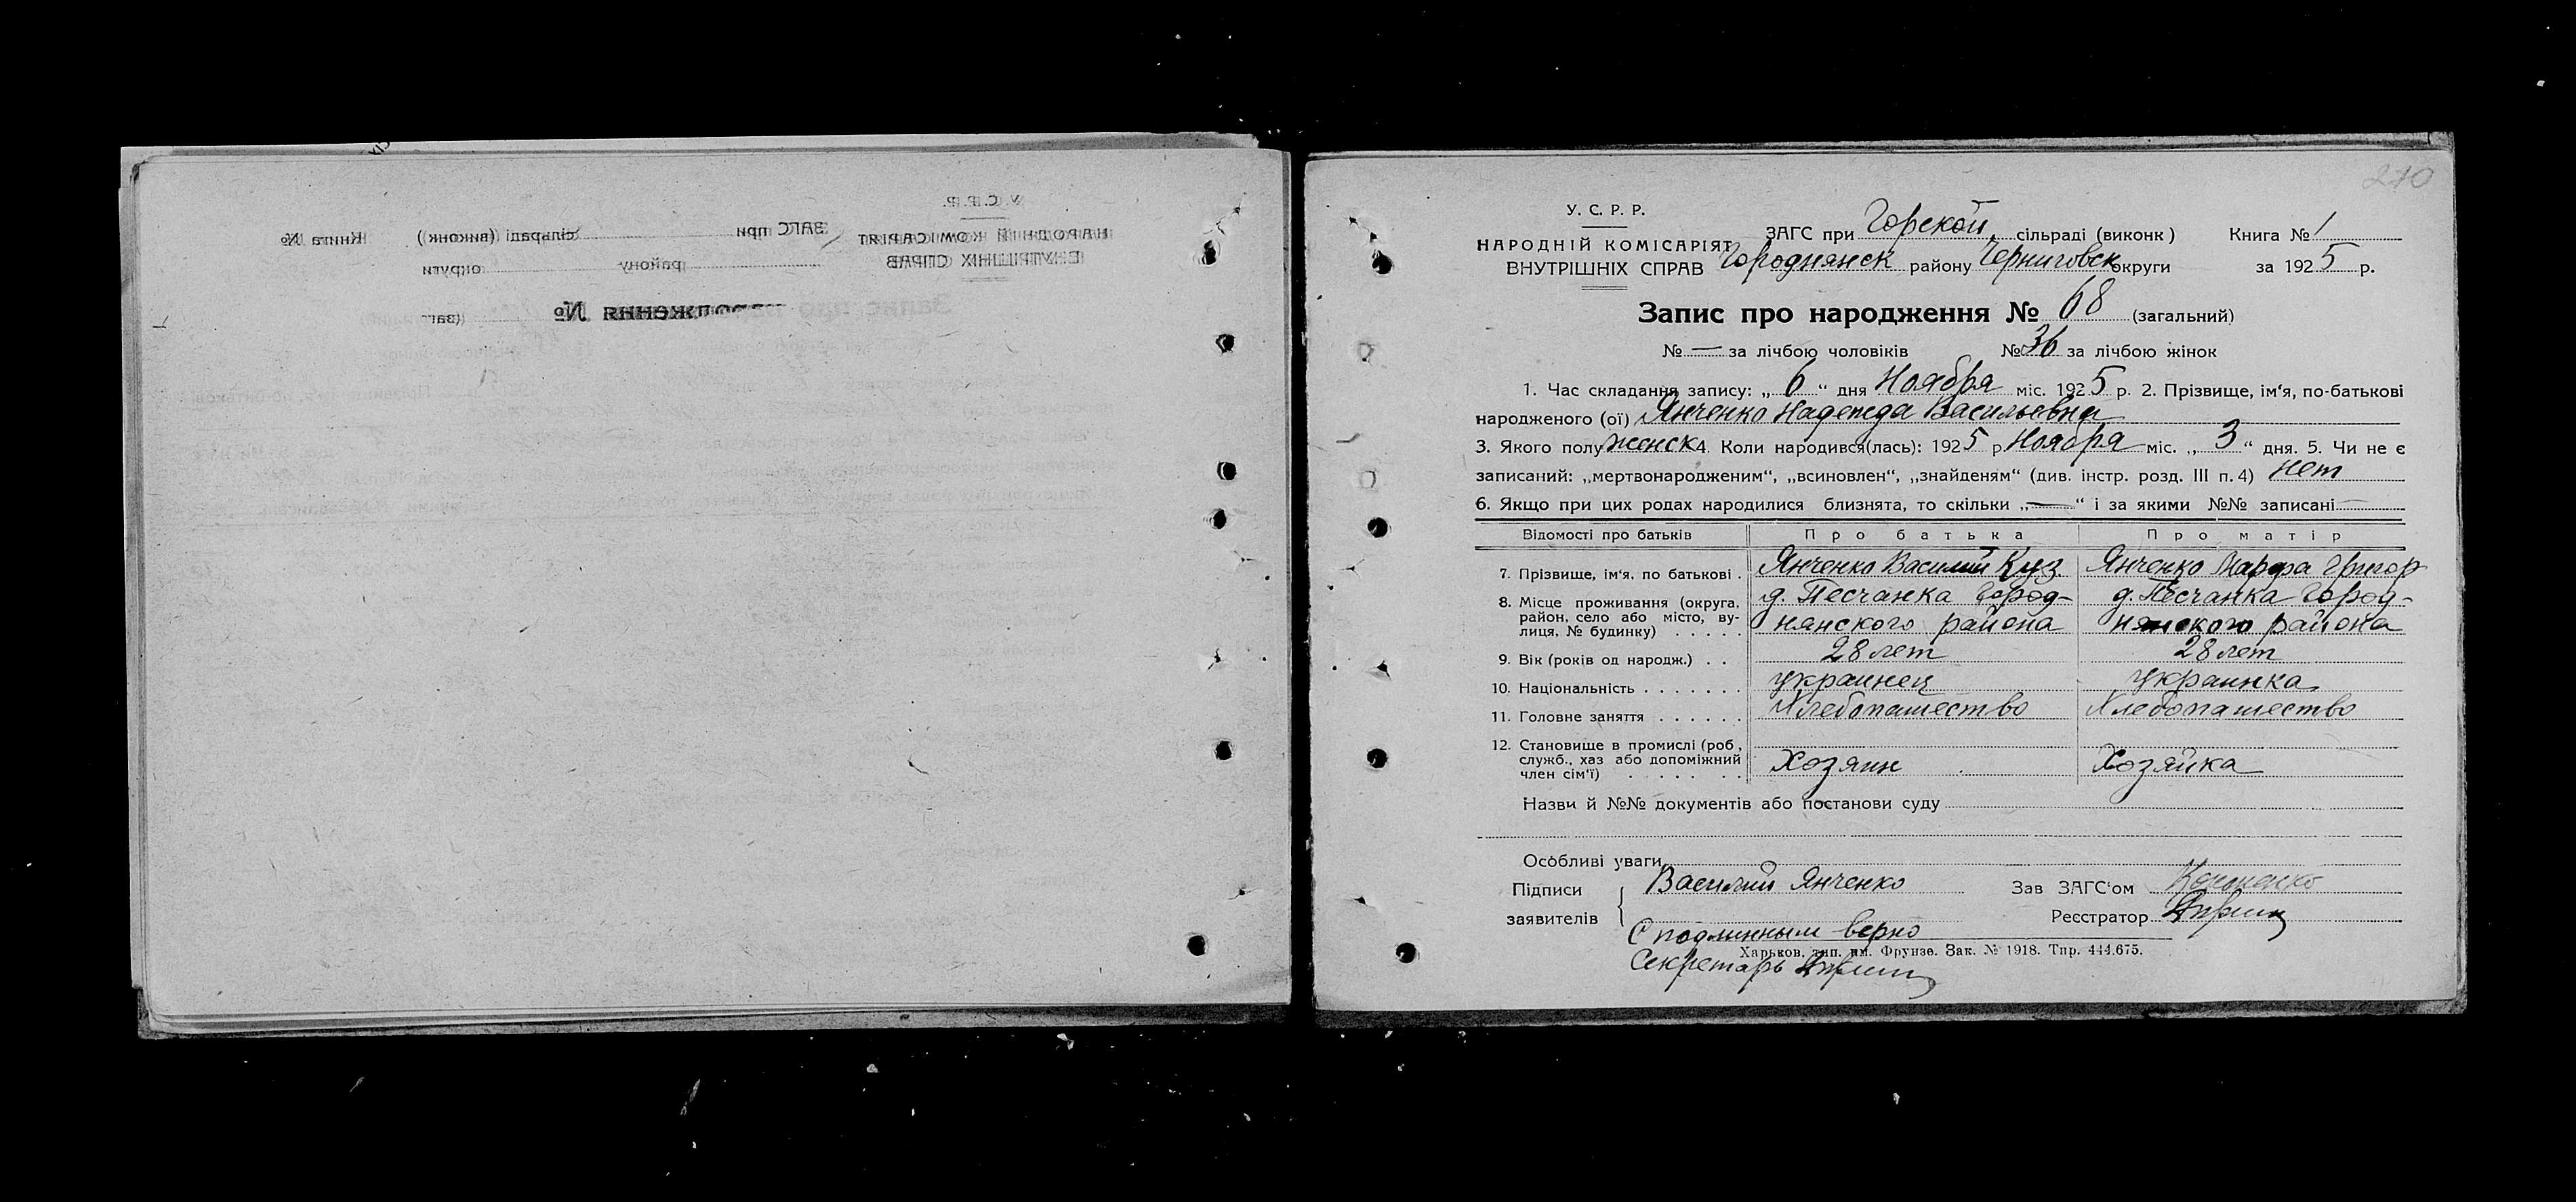 У. С. Р. Р.
НАРОДНІЙ КОМІСАРІЯТ
ВНУТРІШНІХ СПРАВ
ЗАГС при
сільраді (виконк)
Книга №
району
округи
народження №
(заг
270
У. С. Р. Р.
НАРОДНІЙ КОМІСАРІЯТ
ВНУТРІШНІХ СПРАВ
ЗАГС при Горской сільраді (виконк) Книга № 1
Городнянск району Черниговск округи за 1925 р.
Запис про народження № 68 (загальний)
№ — за лічбою чоловіків № 36 за лічбою жінок
1. Час складання запису: „6“ дня Ноября міс. 1925 р. 2. Прізвище, ім‘я, по-батькові
народженого (ої) Янченко Надежда Васильевна
3. Якого полу женск 4. Коли народився(лась): 1925 р Ноября міс. „3“ дня. 5. Чи не є
записаний: „мертвонародженим“, „всиновлен“, „знайденям“ (див. інстр. розд. III п. 4) нет
6. Якщо при цих родах народилися близнята, то скільки „—“ і за якими №№ записані —
Відомості про батьків Про батька Про матір
7. Прізвище, ім‘я, по батькові . Янченко Василий Куз. Янченко Марфа Григор
8. Місце проживання (округа, д. Песчанка Город- д. Песчанка Город-
район, село або місто, ву- нянского района нянского района
лиця, № будинку) . . . . .
9. Вік (років од народж.) . . 28 лет 28 лет
10. Національність . . . . . . . украинец украинка
11. Головне заняття . . . . . . Хлебопашество Хлебопашество
12. Становище в промислі (роб,
служб., хаз або допоміжний Хозяин Хозяйка
член сім‘ї) . . . . . . .
Назви й №№ документів або постанови суду
Особливі уваги
Підписи Василий Янченко Зав ЗАГС‘ом
заявителів Реєстратор
С подлинным верно
Харьков, тип. им. Фрунзе. Зак. № 1918. Тпр. 444.675.
Секретарь